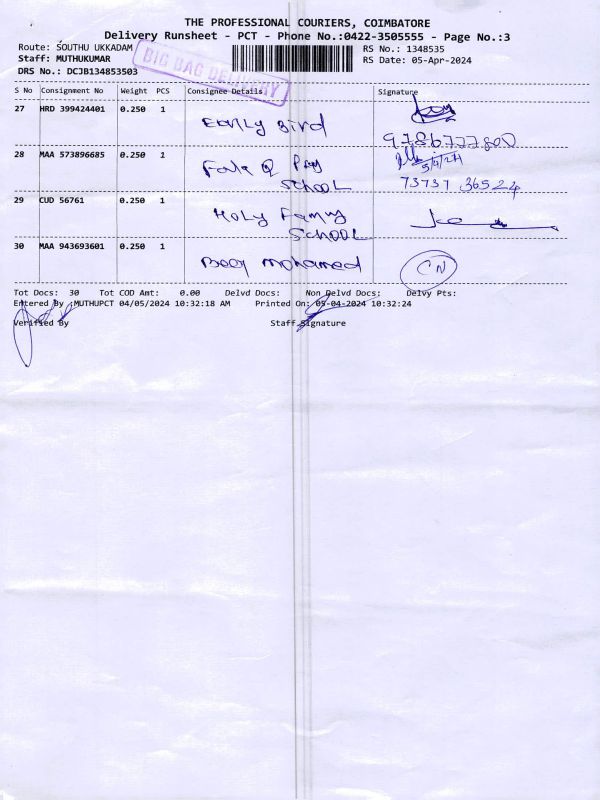 THE PROFESSIONAL COURIERS, COIMBATORE
Delivery Runsheet - PCT - Phone No.:0422-3505555 - Page No.:3
Route: SOUTHU UKKADAM
RS No.: 1348535
Staff: MUTHUKUMAR
RS Date: 05-Apr-2024
DRS No.: DCJB134853503
BIG BAG DELIVERY
S No Consignment No Weight PCS Consignee Details Signature
27 HRD 399424401 0.250 1
Early Bird
9786777800
28 MAA 573896685 0.250 1
5/4/24
Play
School
73737 36524
29 CUD 56761 0.250 1
Holy Family
School
30 MAA 943693601 0.250 1
Beer mohamed
CN
Tot Docs: 30 Tot COD Amt: 0.00 Delvd Docs: Non Delvd Docs: Delvy Pts:
Entered By :MUTHUPCT 04/05/2024 10:32:18 AM Printed On: 05-04-2024 10:32:24
Verified By Staff Signature